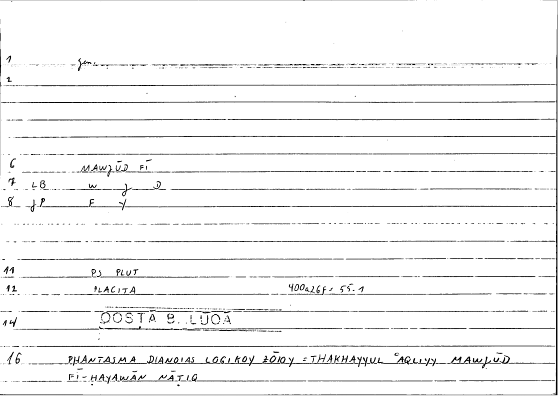 1 gen.
2
6 MAWJŪD FĪ
7 LB W J D
8 JP F Y
11 PS PLUT
12 PLACITA 400a26F. 55.1
14 QOSṬĀ B. LŪQĀ
16 PHANTASMA DIANOIAS LOGIKOY ZŌIOY = THAKHAYYUL ʿAQLIYY MAWJŪD
FĪ-HAYAWĀN NĀTIQ